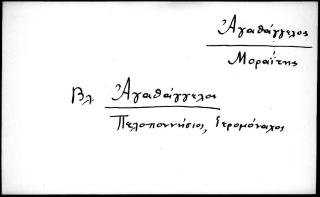 Ἀγαθάγγελος
Μοραΐτης
Βλ Ἀγαθάγγελος
Πελοποννήσιος, ἱερομόναχος